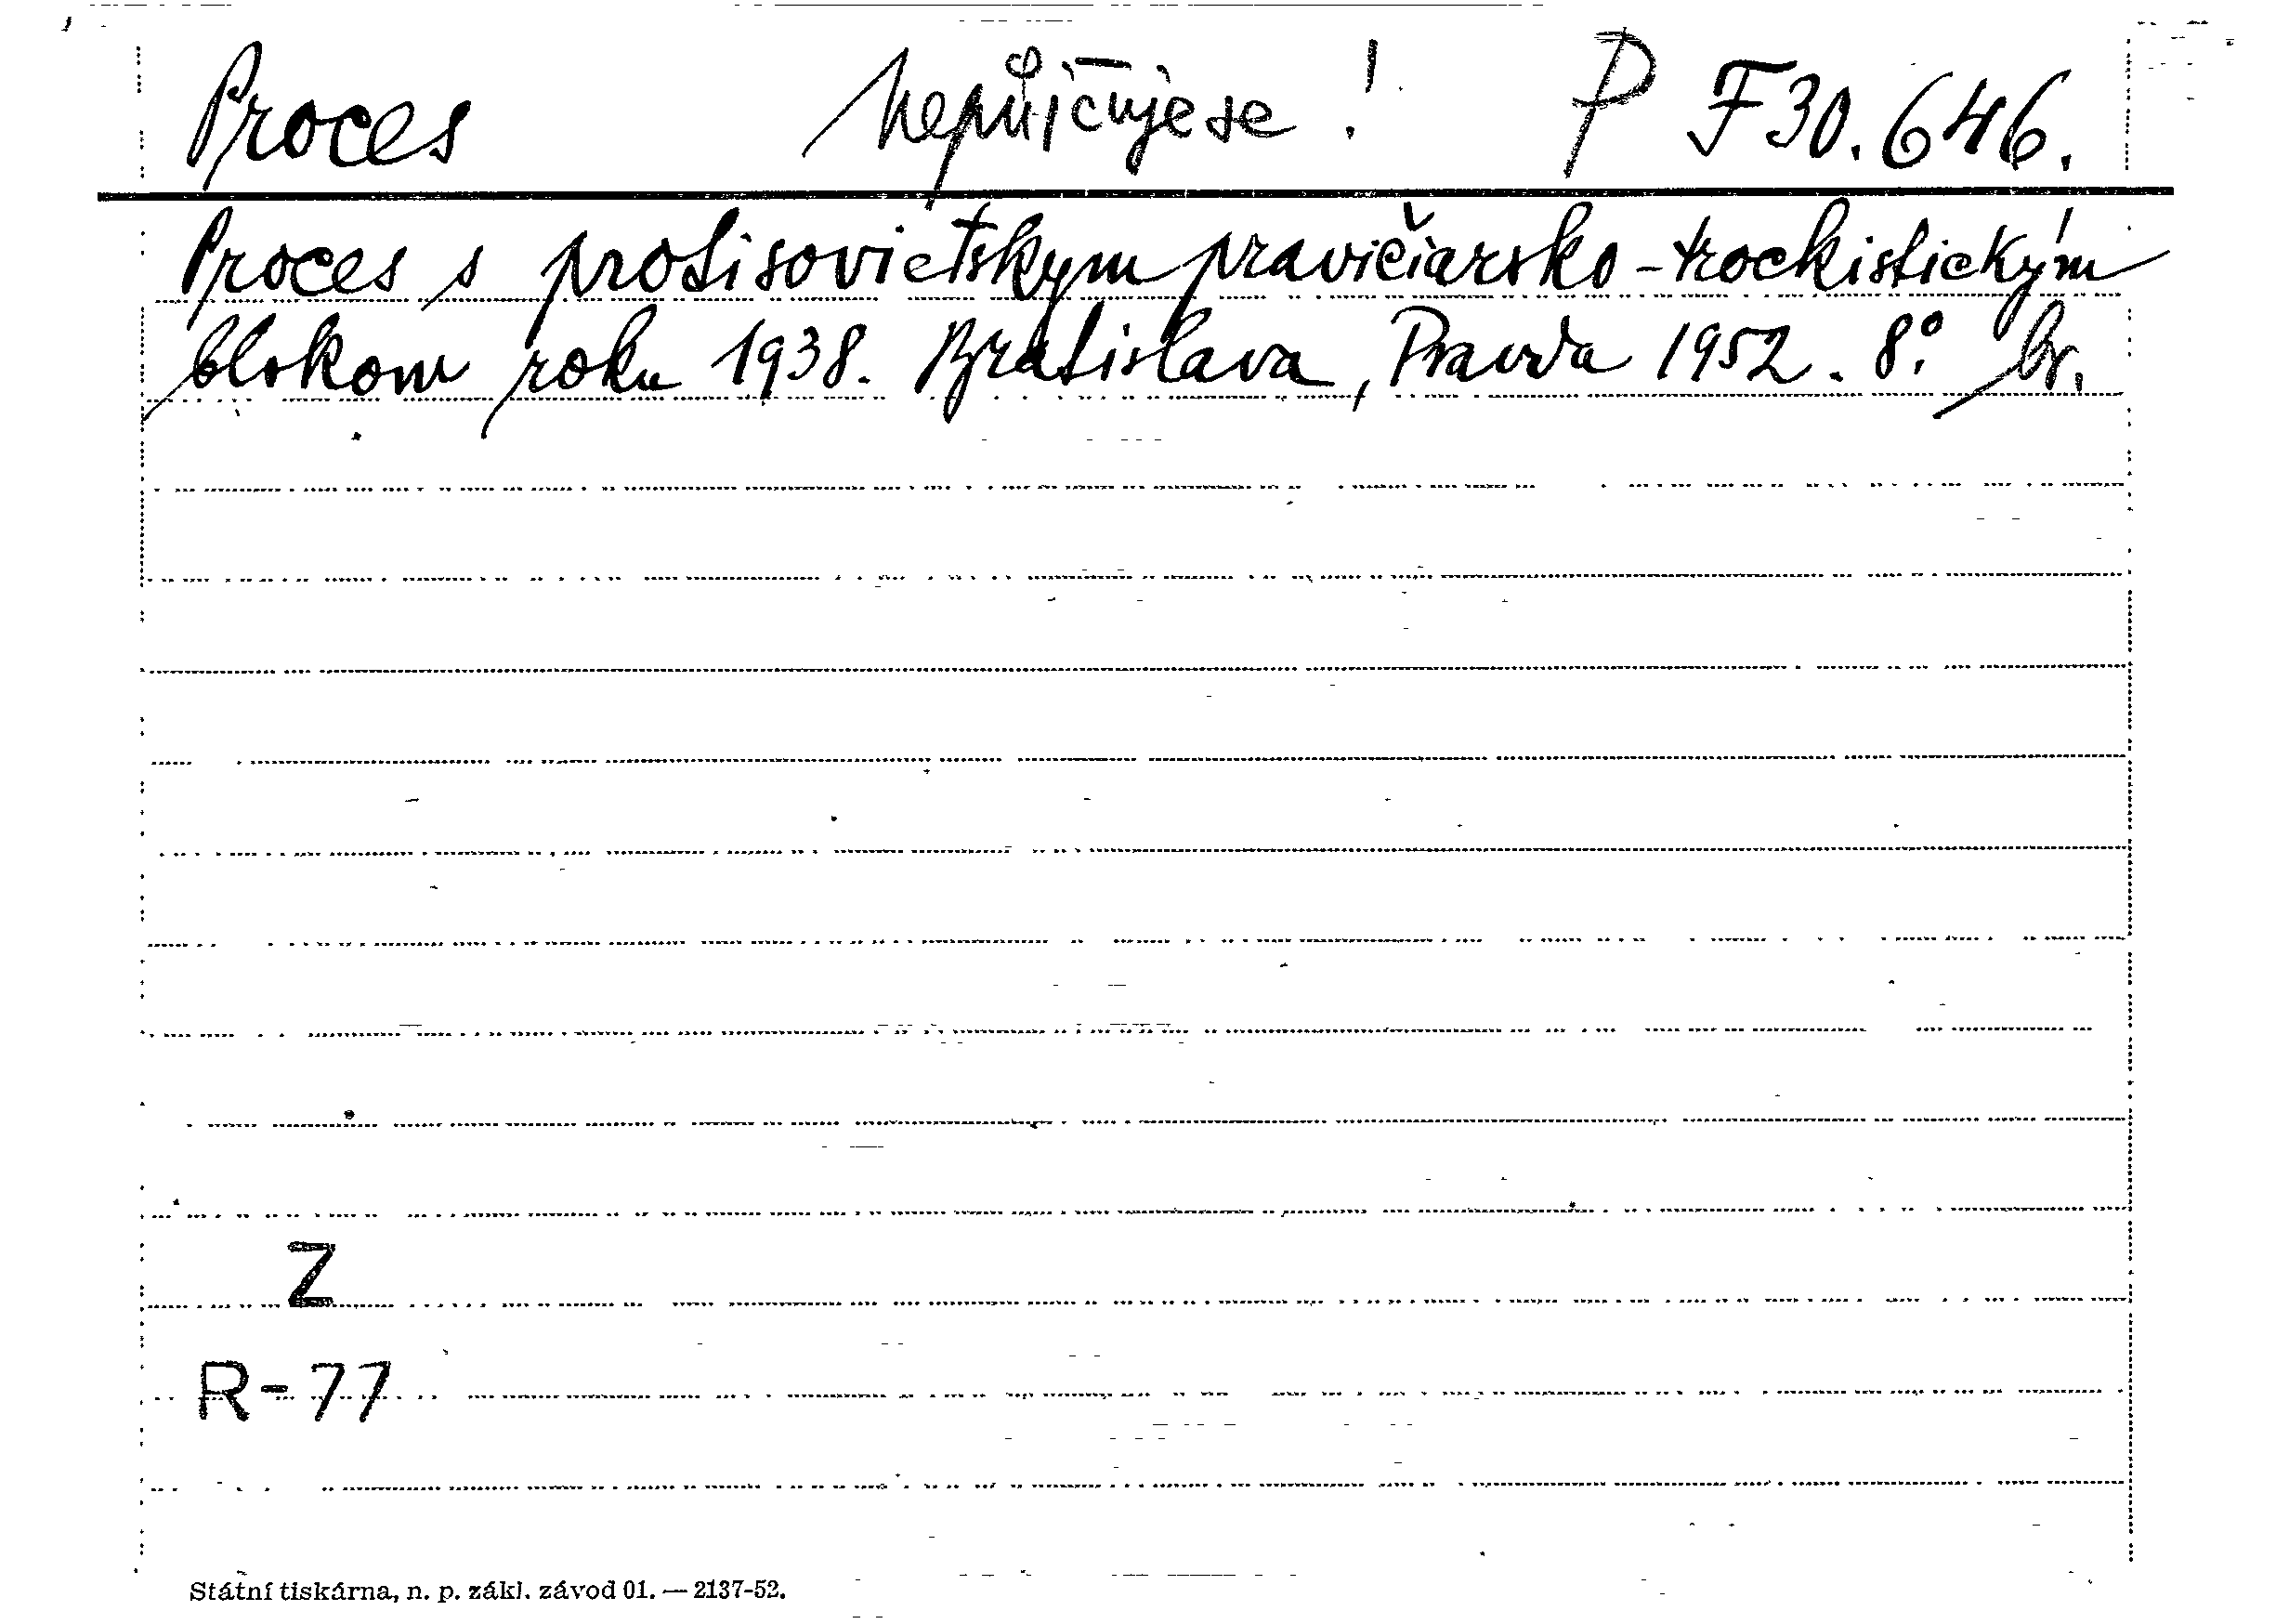 Proces Nepůjčuje se! P F 30.646.
Proces s protisovietskym pravičiarsko-trockistickým
blokom roku 1938. Bratislava, Pravda 1952. 8°. br.
Z
R-77
Státní tiskárna, n. p. zákl. závod 01. — 2137-52.